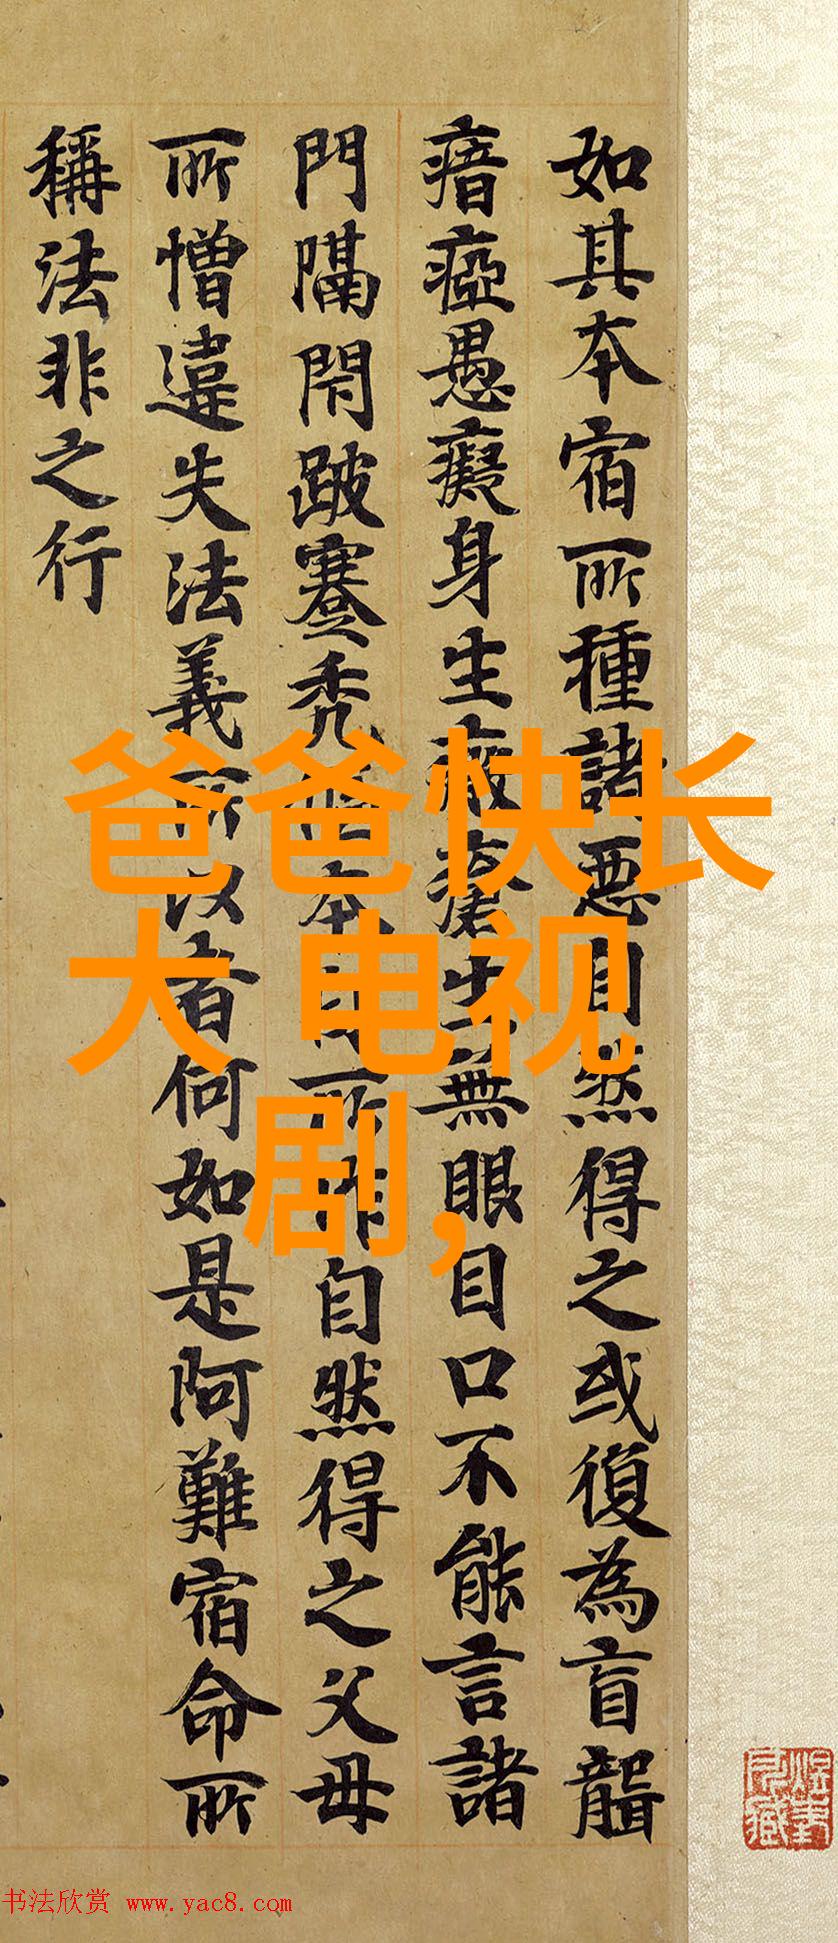 如其本宿所種諸惡自然得之或復為盲聾
瘖瘂愚癡身生瘡生無眼目口不能言諸
門隔閇跛蹇禿本所作自然得之父母
所憎違失法義所以者何如是阿難宿命所
稱法非之行
爸爸快长
大 电视
剧,
书法欣赏 www.yac8.com